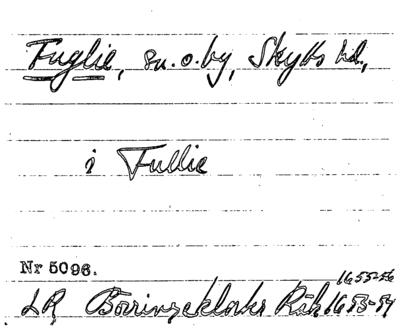 Fuglie, sn. o. by, Skytts hd,
i Fullie
Nr 5096.
1655-56
LR Börringekloster Räk 1653-54